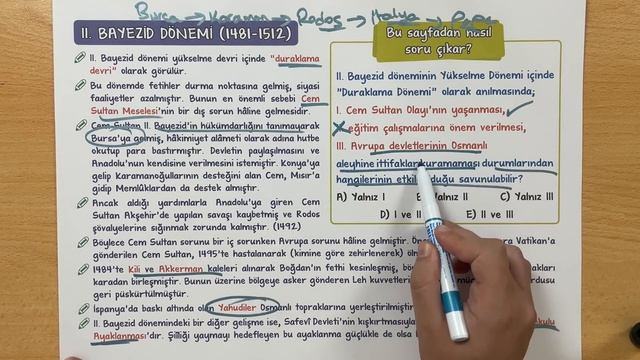 Bursa → Karaman → Rodos → İtalya →
II. BAYEZİD DÖNEMİ (1481-1512)
II. Bayezid dönemi yükselme devri içinde "duraklama
devri" olarak görülür.
Bu dönemde fetihler durma noktasına gelmiş, siyasi
faaliyetler azalmıştır. Bunun en önemli sebebi Cem
Sultan Meselesi'nin bir dış sorun hâline gelmesidir.
Cem Sultan II. Bayezid'in hükümdarlığını tanımayarak
Bursa'ya gelmiş, hâkimiyet alâmeti olarak adına hutbe
okutup para bastırmıştır. Devletin paylaşılmasını ve
Anadolu'nun kendisine verilmesini istemiştir. Konya'ya
gelip Karamanoğullarının desteğini alan Cem, Mısır'a
gidip Memlüklardan da destek almıştır.
Ancak aldığı yardımlarla Anadolu'ya giren Cem
Sultan Akşehir'de yapılan savaşı kaybetmiş ve Rodos
şövalyelerine sığınmak zorunda kalmıştır. (1492)
Böylece Cem Sultan sorunu bir iç sorunken Avrupa sorunu hâline gelmiştir. Vatikan'a
gönderilen Cem Sultan, 1495'te hastalanarak (kimine göre zehirlenerek)
1484'te Kili ve Akkerman kaleleri alınarak Boğdan'ın fethi kesinleşmiş,
karadan birleşmiştir. Bunun üzerine bölgeye asker gönderen Leh kuvvetleri ordusu
geri püskürtülmüştür.
İspanya'da baskı altında olan Yahudiler Osmanlı topraklarına yerleştirilmiştir
II. Bayezid dönemindeki bir diğer gelişme ise, Safevî Devleti'nin kışkırtmasıyla
Ayaklanması'dır. Şiiliği yaymayı hedefleyen bu ayaklanma güçlükle de olsa
Bu sayfadan nasıl
soru çıkar?
II. Bayezid döneminin Yükselme Dönemi içinde
"Duraklama Dönemi" olarak anılmasında;
I. Cem Sultan Olayı'nın yaşanması,
eğitim çalışmalarına önem verilmesi,
III. Avrupa devletlerinin Osmanlı
aleyhine ittifaklar kuramaması durumlarından
hangilerinin savunulabilir?
A) Yalnız I Yalnız II C) Yalnız III
D) I ve II E) II ve III